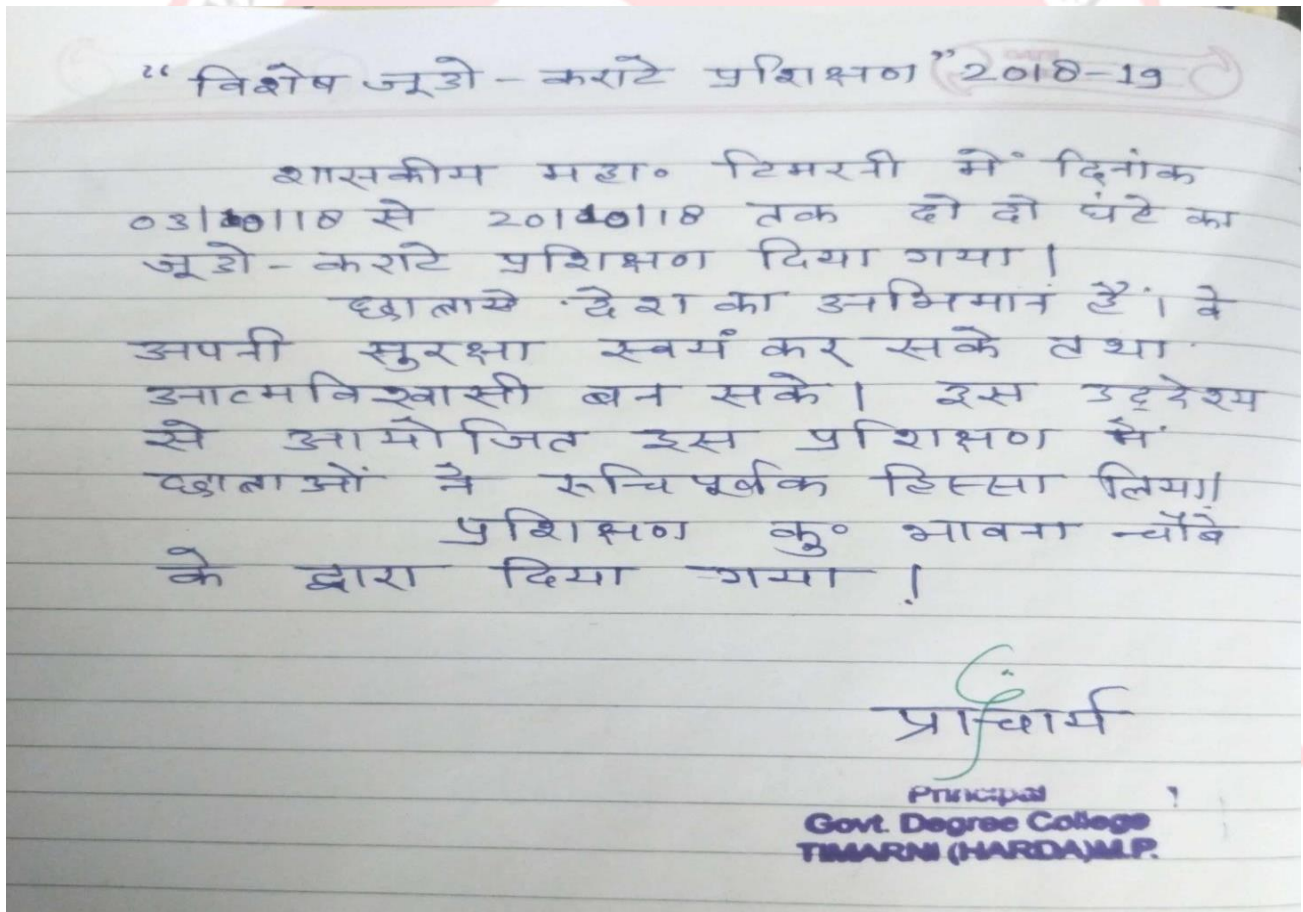 “ विशेष जूडो - कराटे प्रशिक्षण ” 2018-19
शासकीय महा० टिमरनी में दिनांक
03/10/18 से 20/10/18 तक दो दो घंटे का
जूडो - कराटे प्रशिक्षण दिया गया |
छात्रायें देश का अभिमान हैं। वे
अपनी सुरक्षा स्वयं कर सके तथा
आत्मविश्वासी बन सके | इस उद्देश्य
से आयोजित इस प्रशिक्षण में
छात्राओं ने रूचिपूर्वक हिस्सा लिया|
प्रशिक्षण कु० भावना चौबे
के द्वारा दिया गया |
प्राचार्य
Principal
Govt. Degree College
TIMARNI (HARDA)M.P.